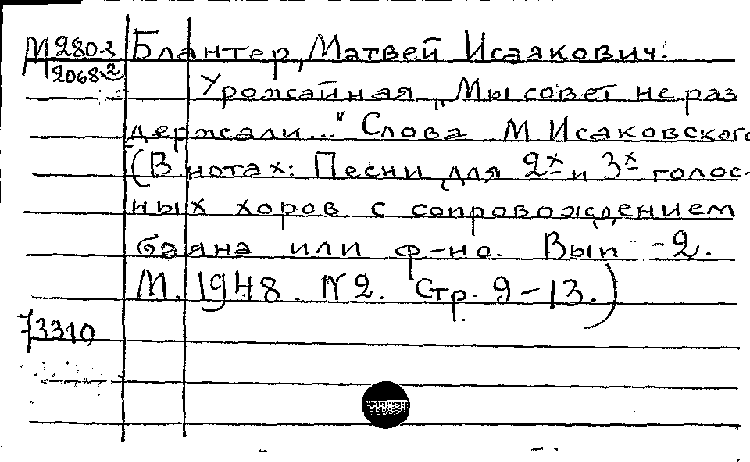 М280-3 Блантер, Матвей Исаакович.
2068-2
Урожайная „Мы совет не раз
держали..." Слова М Исаковского
(В нотах: Песни для 2х и 3х голос-
ных хоров с сопровождением
баяна или ф-но. Вып-2.
М. 1948. N2. Стр. 9-13.)
73310